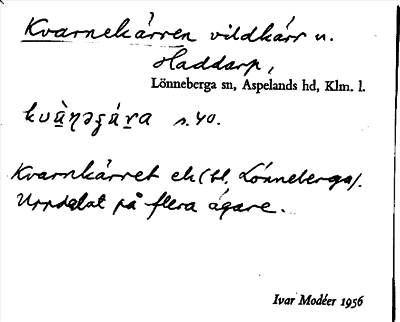 Kvarnekärren vildkärr u.
Haddarp,
Lönneberga sn, Aspelands hd, Klm. l.
s. 40.
Kvarnkärret ek (bl. Lönneberga).
Uppdelat på flera ägare.
Ivar Modéer 1956